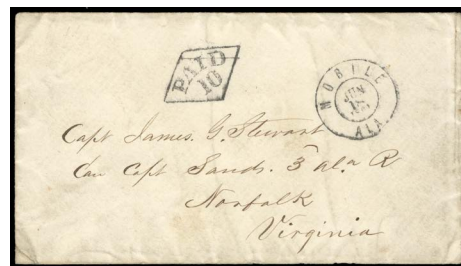 PAID
10
MOBILE
JUN
ALA.
Capt James. G. Stewart
Care Capt Sands. 3 ala R
Norfolk
Virginia